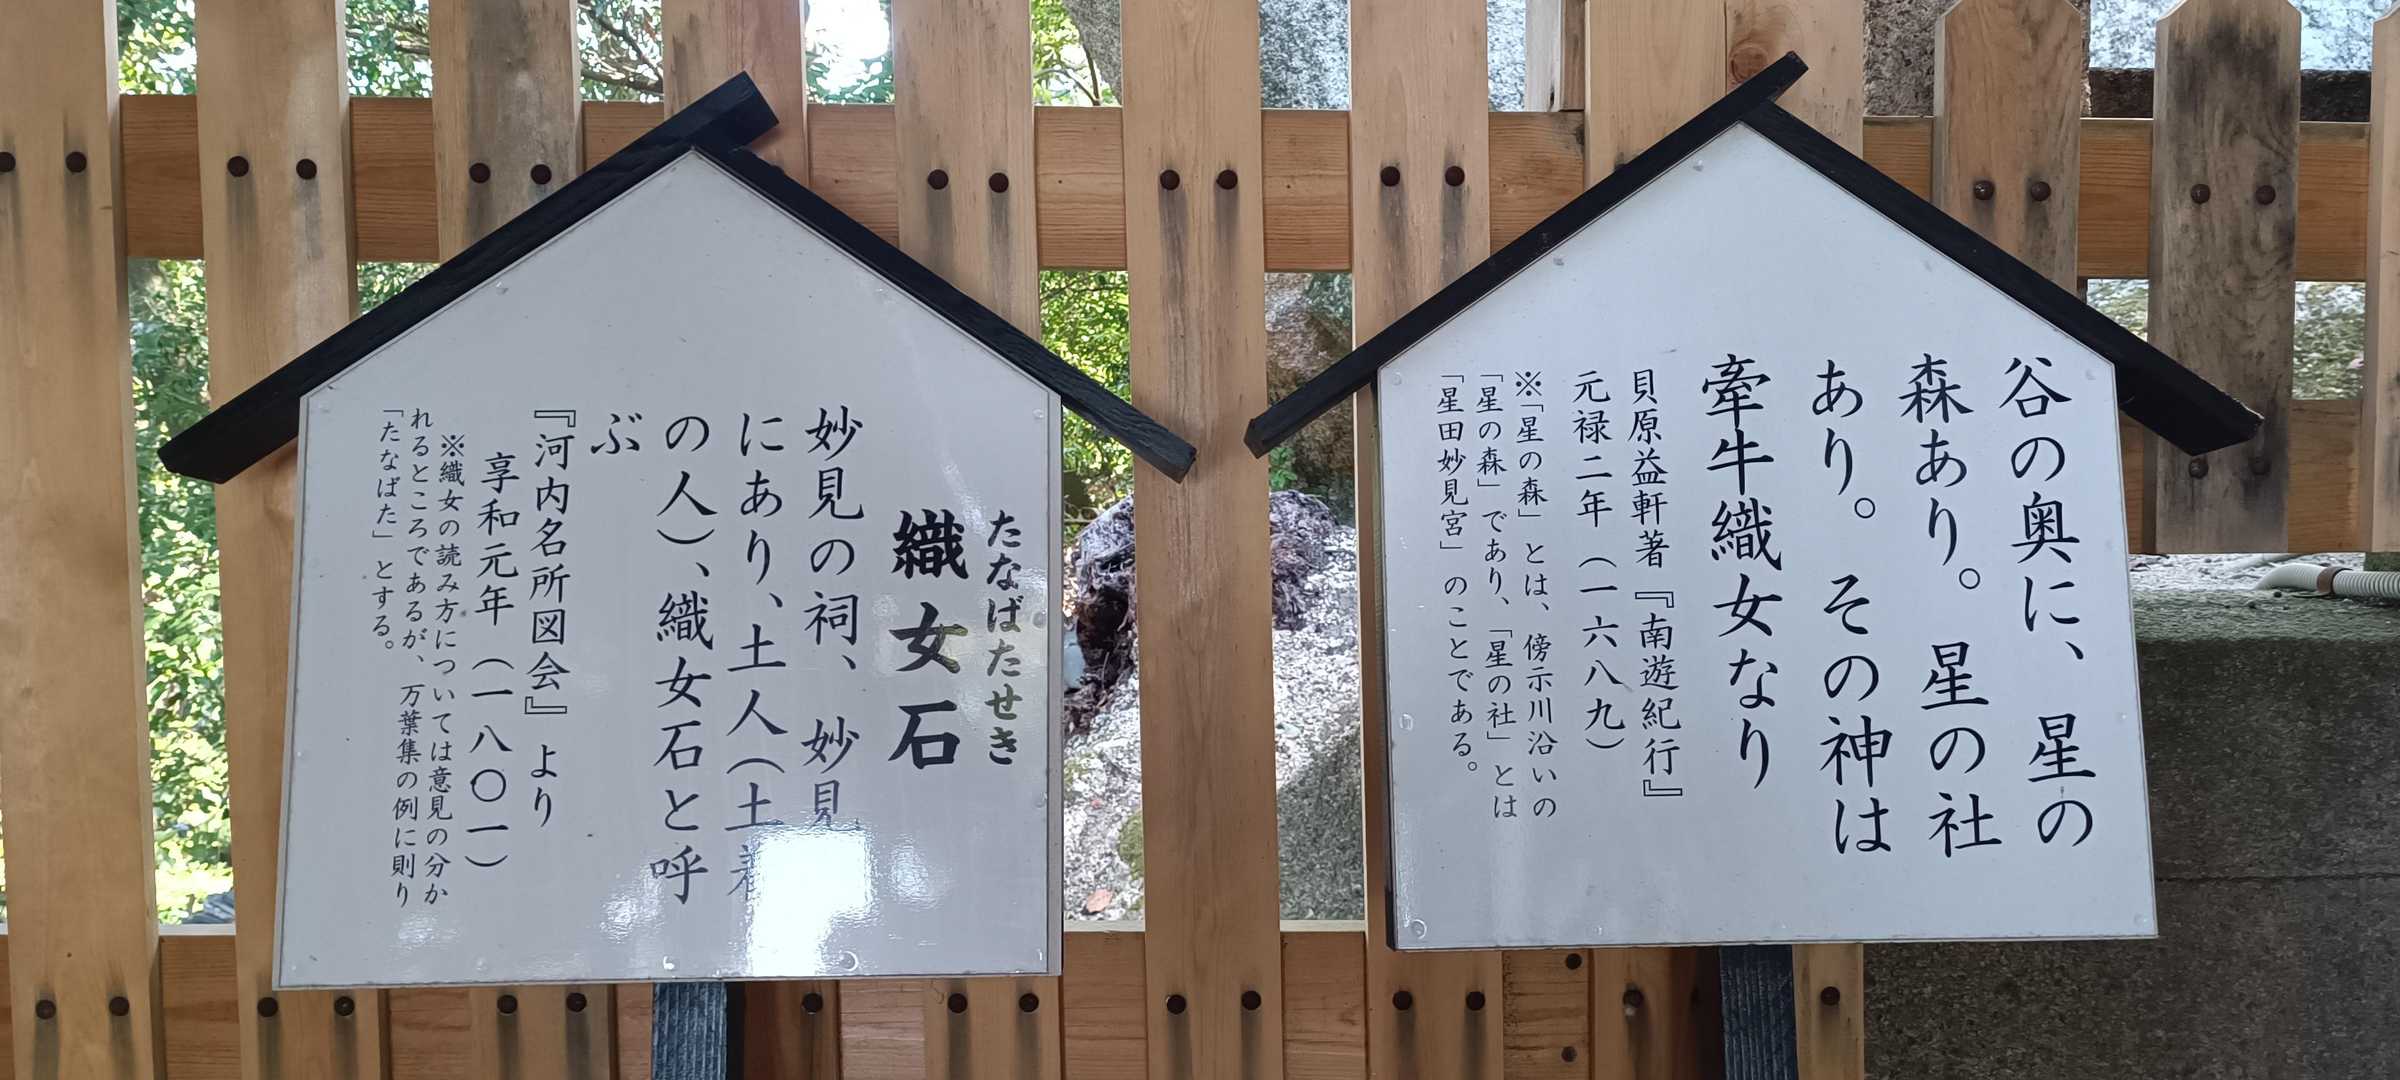 谷の奥に、星の
森あり。星の社
あり。その神は
牽牛織女なり
貝原益軒著『南遊紀行』
元禄二年（一六八九）
※「星の森」とは、傍示川沿いの
「星の森」であり、「星の社」とは
「星田妙見宮」のことである。
たなばたせき
織女石
妙見の祠、妙見
にあり、土人（土着
の人）、織女石と呼
ぶ
『河内名所図会』より
享和元年（一八〇一）
※織女の読み方については意見の分か
れるところであるが、万葉集の例に則り
「たなばた」とする。